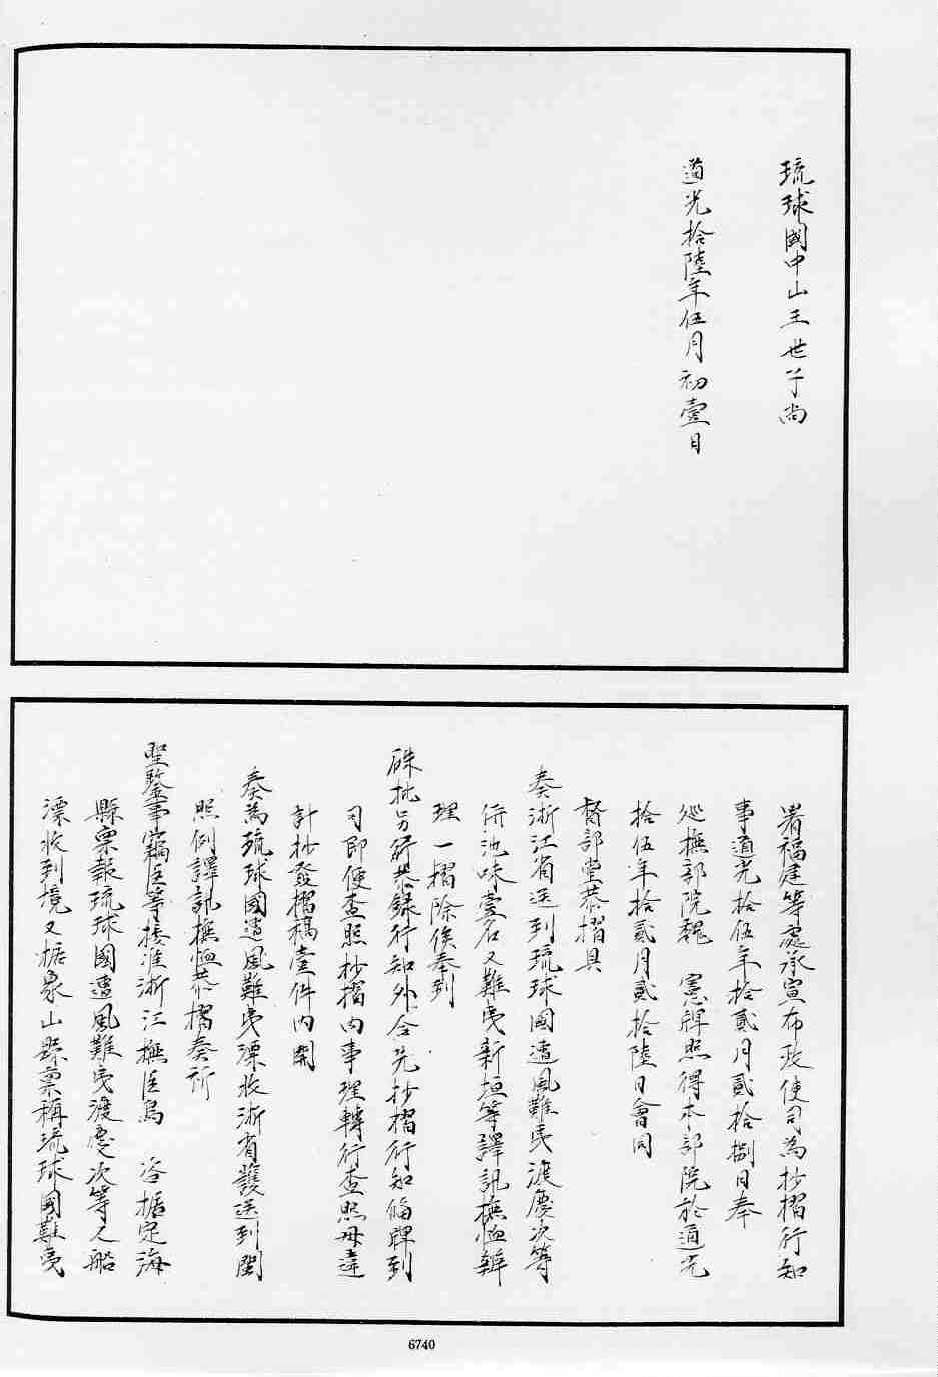 琉球國中山王世子尚
道光拾陸年伍月初壹日
署福建等處承宣布政使司為抄摺行知
事道光拾伍年拾貳月貳拾捌日奉
巡撫部院魏 憲牌照得本部院於道光
拾伍年拾貳月貳拾陸日會同
督部堂恭摺具
奏浙江省送到琉球國遭風難夷渡慶次等
併池味壹名又難夷新垣等譯訊撫恤辦
理一摺除俟奉到
硃批另行恭錄行知外合先抄摺行知備牌到
司即便查照抄摺內事理轉行查照毋違
計抄發摺稿壹件內開
奏為琉球國遭風難夷漂收浙省護送到閩
照例譯訊撫恤恭摺奏祈
聖鑒事竊臣等接准浙江撫臣烏 咨據定海
縣稟報琉球國遭風難夷渡慶次等人船
漂收到境又據象山縣稟稱琉球國難夷
6740